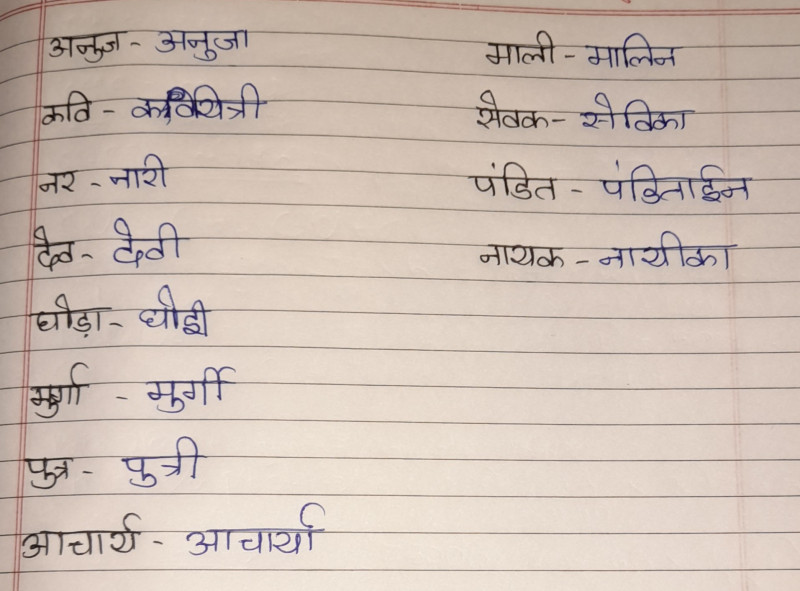 अनुज - अनुजा
कवि - कवियित्री
नर - नारी
देव - देवी
घोड़ा - घोड़ी
मुर्गा - मुर्गी
पुत्र - पुत्री
आचार्य - आचार्या
माली - मालिन
सेवक - सेविका
पंडित - पंडिताईन
नायक - नायीका